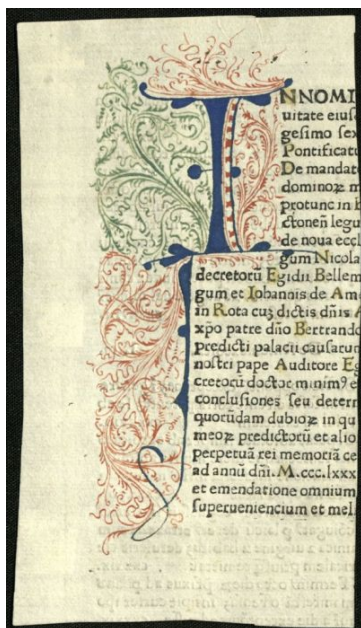 INNOMI
uitate eius
gesimo sex
Pontificatu
De mandat
dominoꝝ m
protunc in
ctoneñ legu
de noua eccl
gum Nicola
decretorū Egidii Bellem
gum et Iohannis de Am
in Rota cuꝫ dictis dn̄is
xpo patre dn̄o Bertrando
predicti palacii causaruꝫ
nostri pape Auditore Eg
cretorū doctor minimꝰ e
conclusiones seu determ
quorūdam dubioꝝ in qu
meoꝝ predictorū et alio
perpetuā rei memoriā ce
ad annū dn̄i. M.ccc.lxxx
et emendatione omnium
superueniencium et mel